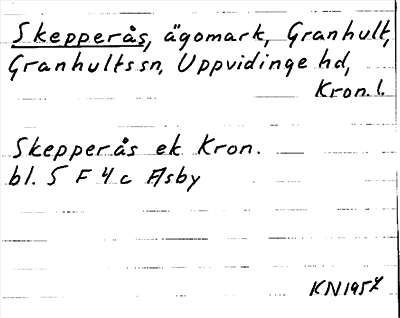 Skepperås, ägomark, Granhult,
Granhults sn, Uppvidinge hd,
Kron. l.
Skepperås ek Kron.
bl. 5 F 4 c Åsby
KN1957